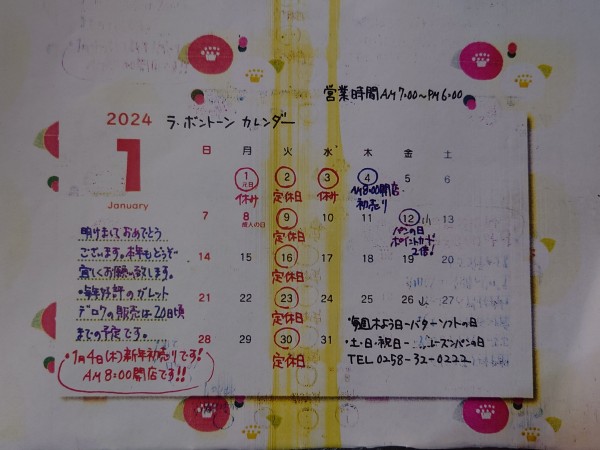 営業時間AM7:00〜PM6:00
2024 ラ・ボントーン カレンダー
1
January
日 月 火 水 木 金 土
1 2 3 4 5 6
元日
休み 定休日 休み AM8:00開店
初売り
7 8 9 10 11 12 13
成人の日
定休日 パンの日
ポイントカード
2倍。
14 15 16 17 18 19 20
定休日
21 22 23 24 25 26 27
定休日
28 29 30 31
定休日
明けましておめでとう
ございます。本年もどうぞ
宜しくお願い致します。
・毎年好評のガレット
デロワの販売は20日頃
までの予定です。
・1月4日(木)新年初売りです!
AM8:00開店です!!
・毎週木よう日-バターソフトの日
・土・日・祝日-レーズンパンの日
TEL 0258-32-0222